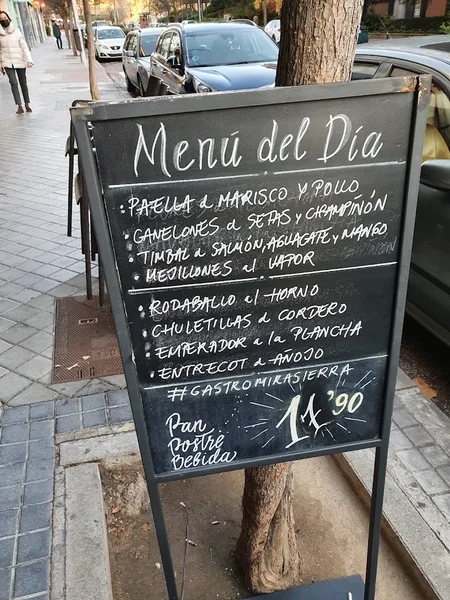 Menú del Día
• PAELLA d MARISCO Y POLLO
• CANELONES d SETAS y CHAMPIÑÓN
• TIMBAL d SALMÓN, AGUACATE y MANGO
• MEJILLONES al VAPOR
• RODABALLO al HORNO
• CHULETILLAS d CORDERO
• EMPERADOR a la PLANCHA
• ENTRECOT d AÑOJO
#GASTROMIRASIERRA
Pan
Postre
Bebida
14'90